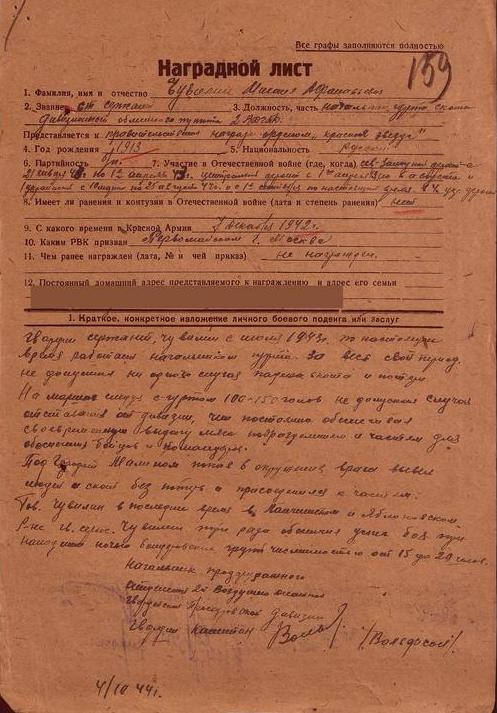 Все графы заполняются полностью
159
Наградной лист
1. Фамилия, имя и отчество Чувилин Михаил Афанасьевич
2. Звание гв. сержант 3. Должность, часть начальник гурта скота
дивизионного обменного пункта 2
Представляется к правительственной награде ордена „красная звезда“
4. Год рождения 1913 5. Национальность русский
6. Партийность б/п. 7. Участие в Отечественной войне (где, когда)
1е апреля 43г. 1го апреля
по 25 августа 43г. по настоящее время
8. Имеет ли ранения и контузии в Отечественной войне (дата и степень ранения) нет
9. С какого времени в Красной Армии 7 декабря 1942г.
10. Каким РВК призван Первомайским г. Москва
11. Чем ранее награжден (дата, № и чей приказ) не награжден.
12. Постоянный домашний адрес представляемого к награждению и адрес его семьи
1. Краткое, конкретное изложение личного боевого подвига или заслуг
Гвардии сержант, Чувилин с июля 1943г. по настоящее
время работает начальником гурта. За весь свой период
не допустил ни одного случая падежа скота и потери
На маршах следуя с гуртом 100-150 голов не допускал случая
отставания от дивизии, чем постоянно обеспечивал
своевременную выдачу мяса подразделениям и частям для
обеспечения бойцов и командиров.
Под городом попав в окружение врага вывел
людей и скот без потерь и присоединился к частям.
Тов. Чувилин в последнее время в и Яблоновском
р-не гв. серж. Чувилин три раза
от 15 до 20
Начальник продфуражного
отделения 2й воздушно десантной
гвардейской Проскуровской дивизии
гвардии капитан
4/10 44г.